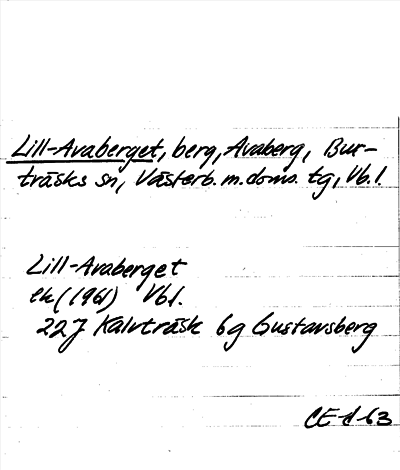 Lill-Avaberget, berg, Avaberg, Bur-
träsks sn, Västerb. m. doms. tg, Vb.l.
Lill-Avaberget
ek (1961) Vbl.
22J Kalvträsk 6g Gustavsberg
CE d 63